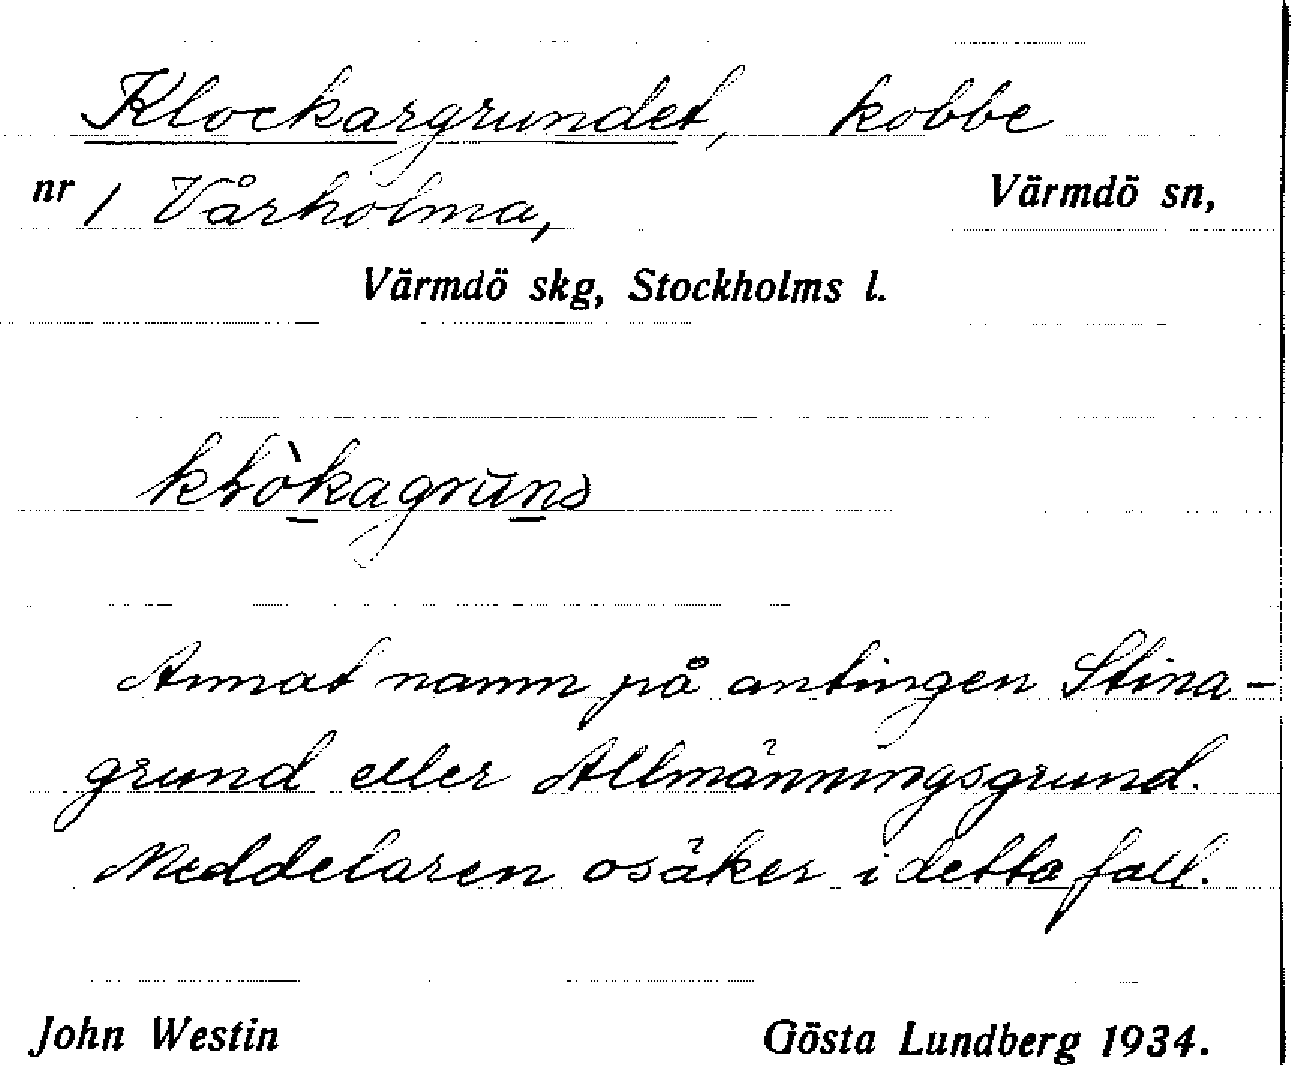 Klockargrundet, kobbe
nr 1 Vårholma, Värmdö sn,
Värmdö skg, Stockholms l.
Annat namn på antingen Stina-
grund eller Allmänningsgrund.
Meddelaren osäker i detta fall.
John Westin Gösta Lundberg 1934.